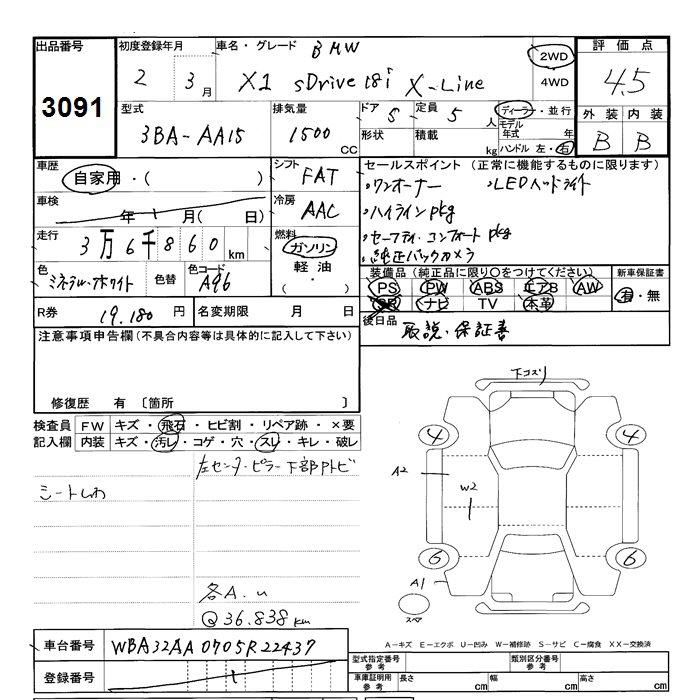 出品番号 初度登録年月 車名・グレード BMW 2WD 評価点
3091 2 3月 X1 sDrive18i X-Line 4WD 4.5
型式 排気量 ドア 5 定員 5人 ディーラー・並行 外装 内装
3BA-AA15 1500CC 形状 積載 kg モデル年式 年 B B
ハンドル 左・右
車歴 自家用・( ) シフト FAT セールスポイント (正常に機能するものに限ります)
車検 年 月( 日) 冷房 AAC ・ワンオーナー ・LEDヘッドライト
・ハイラインpkg
走行 3万6千860km 燃料 ガソリン 軽油 ・セーフティ.コンフォートpkg
・純正バックカメラ
色 ミネラル・ホワイト 色替 色コード A96 装備品 (純正品に限り○をつけてください) 新車保証書
PS PW ABS エアB AW 有・無
SR ナビ TV 本革
R券 19.180円 名変期限 月 日 後日品 取説・保証書
注意事項申告欄 (不具合内容等は具体的に記入して下さい)
修復歴 有 〔箇所 〕
下コスリ
検査員 FW キズ・飛石・ヒビ割・リペア跡・×要
記入欄 内装 キズ・汚レ・コゲ・穴・スレ・キレ・破レ
4 4
左センターピラー下部内トビ
A2
シートしわ
W2
6 6
A1
各A.u
スペア
Q 36.838km
A－キズ E－エクボ U－凹み W－補修跡 S－サビ C－腐食 XX－交換済
車台番号 WBA32AA0705R22437
型式指定番号 参考 類別区分番号 参考
登録番号
車庫証明用 参考 長さ cm 幅 cm 高さ cm